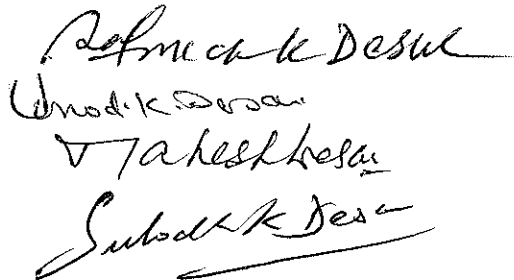 K Desai
Vinod.K.Desai
Mahesh Desai
Subodh K Desai